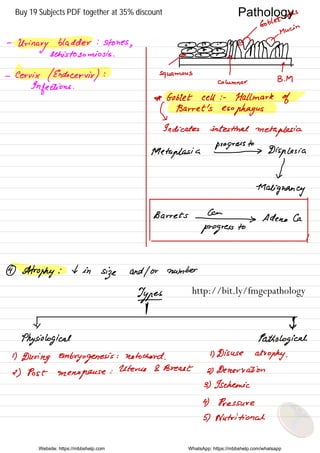 Buy 19 Subjects PDF together at 35% discount
Pathology
- Urinary bladder : stones,
schistosomiosis.
- Cervix (Endocervix) :
Infections.
Goblet cells
Mucin
Squamous
Columnar
B.M
* Goblet cell :- Hallmark of
Barret's esophagus
Indicates intestinal metaplasia
Metaplasia progress to Displasia
Malignancy
Barrets Can progress to Adeno Ca
④ Atrophy : ↓ in size and/or number
Types
http://bit.ly/fmgepathology
Physiological
1) During embryogenesis : notochord.
2) Post menopause : Uterus & Breast
Pathological
1) Disuse atrophy.
2) Denervation
3) Ischemic
4) Pressure
5) Nutritional
Website: https://mbbshelp.com
WhatsApp: https://mbbshelp.com/whatsapp